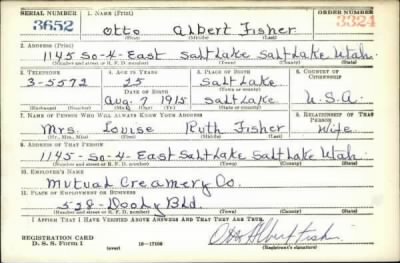 SERIAL NUMBER 1. NAME (Print) ORDER NUMBER
3652 Otto Albert Fisher 3324
(First) (Middle) (Last)
2. ADDRESS (Print)
1145 So-4-East Salt Lake Salt Lake Utah
(Number and street or R. F. D. number) (Town) (County) (State)
3. TELEPHONE 4. AGE IN YEARS 5. PLACE OF BIRTH 6. COUNTRY OF CITIZENSHIP
3-5572 25 Salt Lake
DATE OF BIRTH (Town or county)
Aug. 7 1915 Salt Lake U.S.A.
(Exchange) (Number) (Mo.) (Day) (Yr.) (State or country)
7. NAME OF PERSON WHO WILL ALWAYS KNOW YOUR ADDRESS 8. RELATIONSHIP OF THAT PERSON
Mrs. Louise Ruth Fisher Wife
(Mr., Mrs., Miss) (First) (Middle) (Last)
9. ADDRESS OF THAT PERSON
1145-So-4-East Salt Lake Salt Lake Utah
(Number and street or R. F. D. number) (Town) (County) (State)
10. EMPLOYER'S NAME
Mutual Creamery Co.
11. PLACE OF EMPLOYMENT OR BUSINESS
528-Dooly Bld.
(Number and street or R. F. D. number) (Town) (County) (State)
I AFFIRM THAT I HAVE VERIFIED ABOVE ANSWERS AND THAT THEY ARE TRUE.
REGISTRATION CARD
D. S. S. Form 1 (over) 16—17105 Otto Albert Fisher
(Registrant's signature)